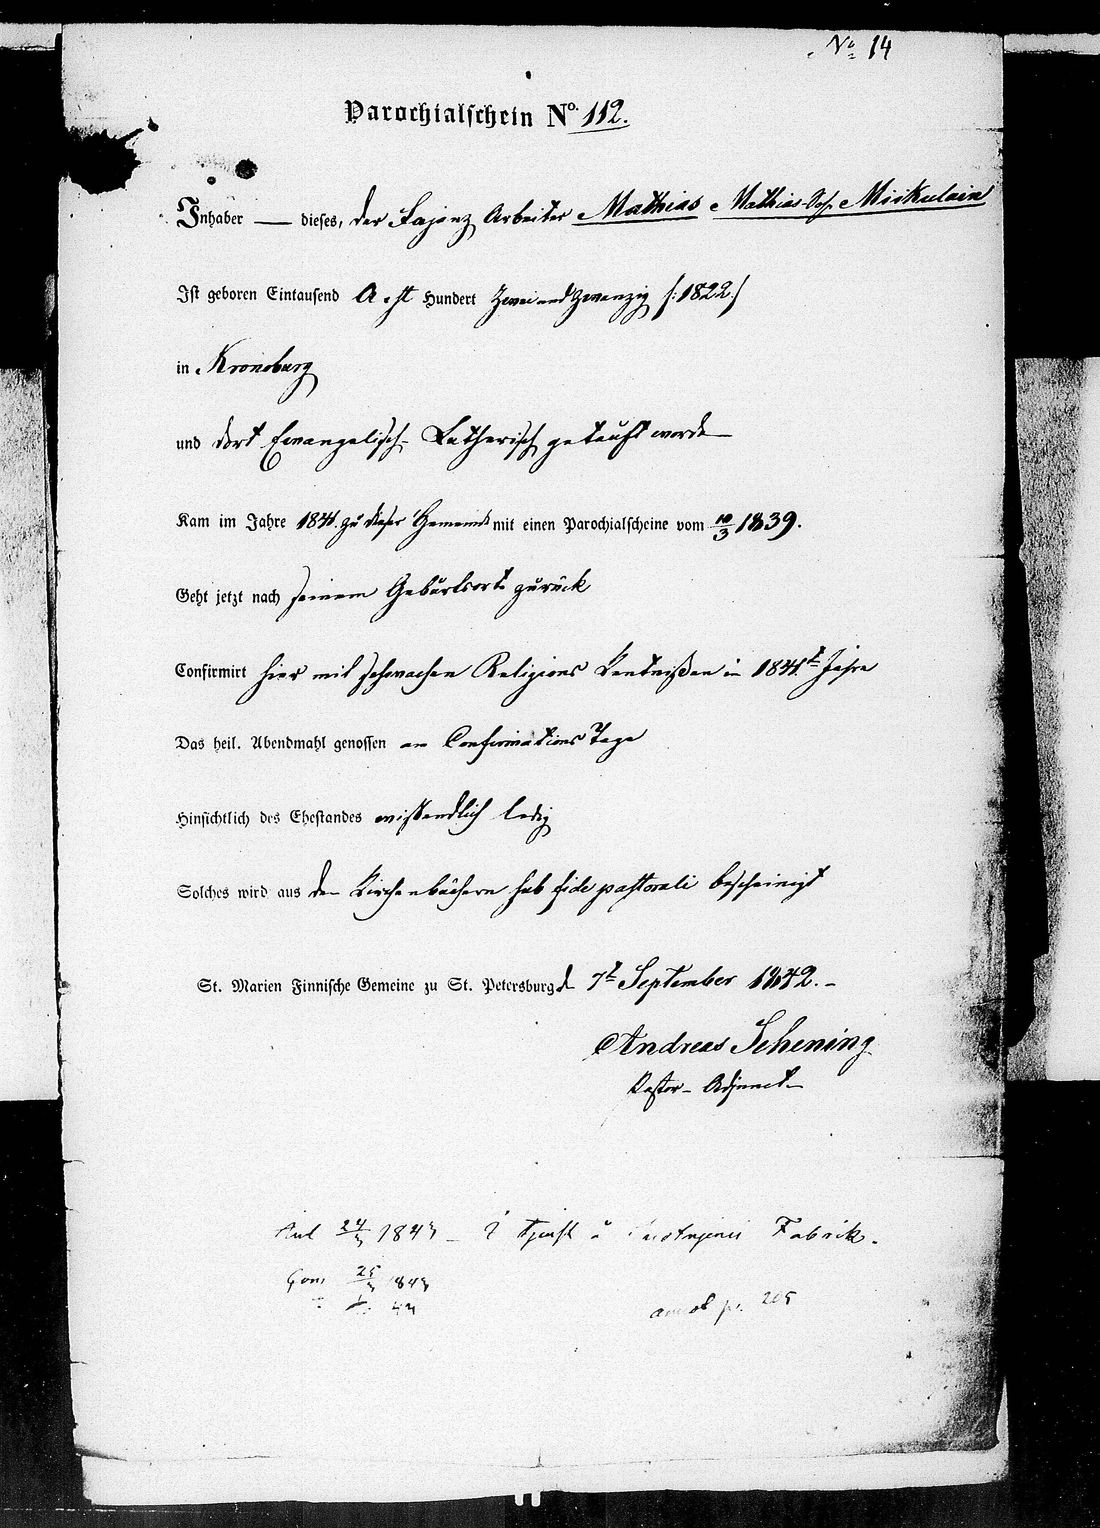 No 14
Parochialschein No. 112.
Inhaber — dieses, der Fajanz Arbeiter Mathias Mathias Miikulain
Ist geboren Eintausend Acht Hundert Zwei und Zwanzig /:1822:/
in Kronoburg
und dort Evangelisch-Lutherisch getauft worden
Kam im Jahre 1841. zu dieser Gemeinde mit einen Parochialscheine vom 10/3 1839.
Geht jetzt nach seinem Geburtsorte zurück
Confirmirt hier mit schwachen Religions Kentnißen in 1841t Jahre
Das heil. Abendmahl genossen am Confirmations Tage
Hinsichtlich des Ehestandes wissendlich ledig
Solches wird aus den Kirchenbüchern sub fide pastorali bescheinigt
St. Marien Finnische Gemeine zu St. Petersburg d 7t September 1842.
Andreas Schening
Pastor-Adjunct
1843 tjenst å Fabrik.
1843